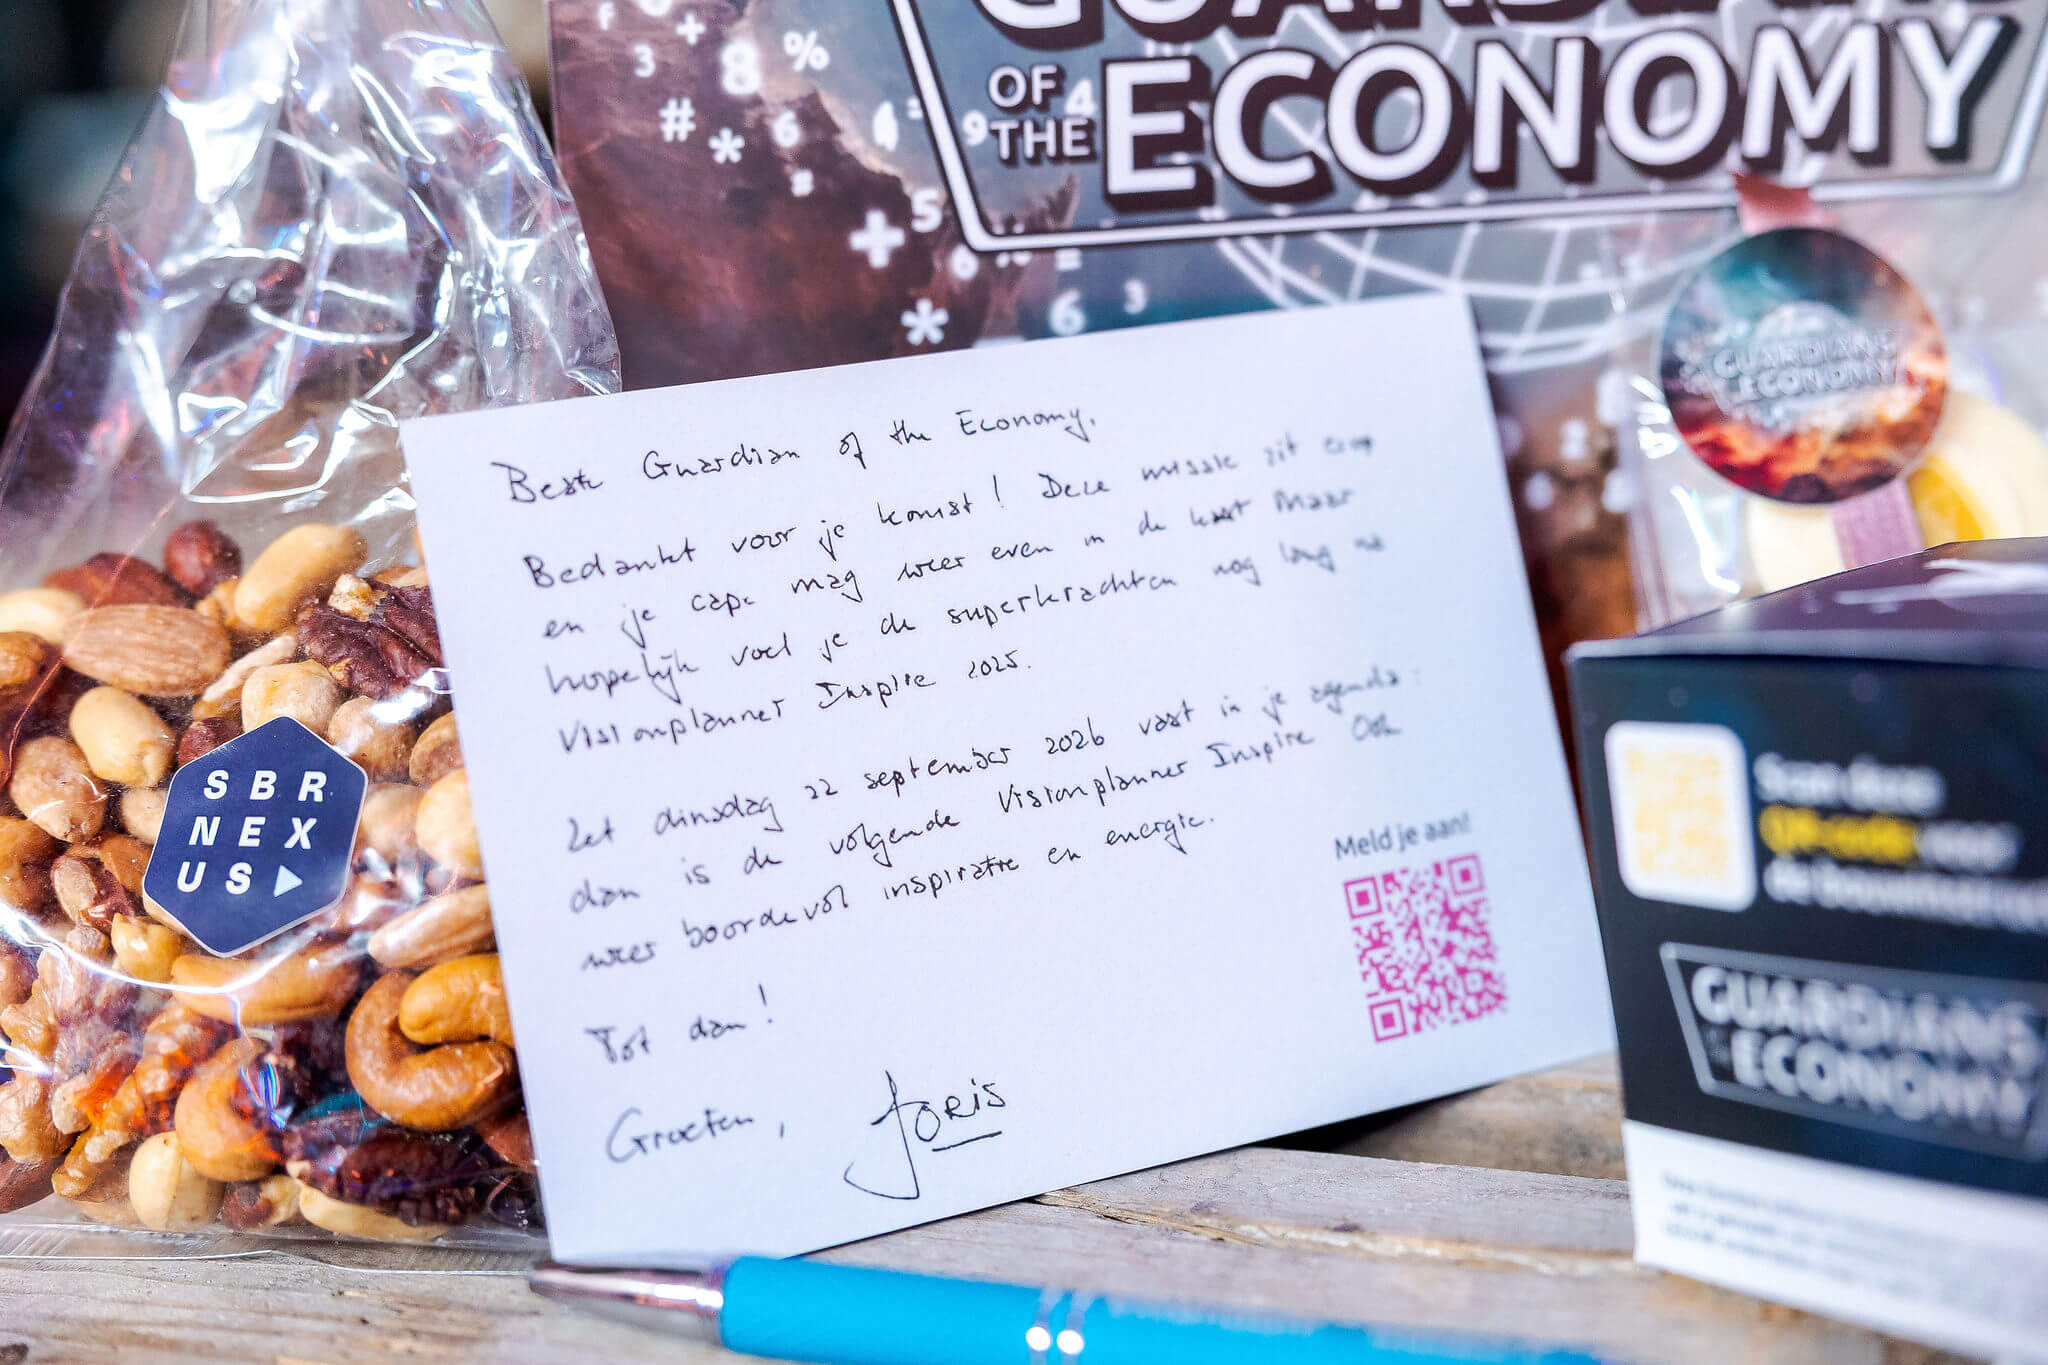 GUARDIANS
OF THE ECONOMY
Beste Guardian of the Economy,
Bedankt voor je komst! Deze missie zit erop
en je cape mag weer even in de kast maar
hopelijk voel je de superkrachten nog lang na
Visionplanner Inspire 2025.
Zet dinsdag 22 september 2026 vast in je agenda:
dan is de volgende Visionplanner Inspire Ook
weer boordevol inspiratie en energie.
Tot dan!
Groeten, JORIS
Meld je aan!
SBR
NEX
US
GUARDIANS
ECONOMY
Scan deze
QR-code voor
GUARDIANS
ECONOMY